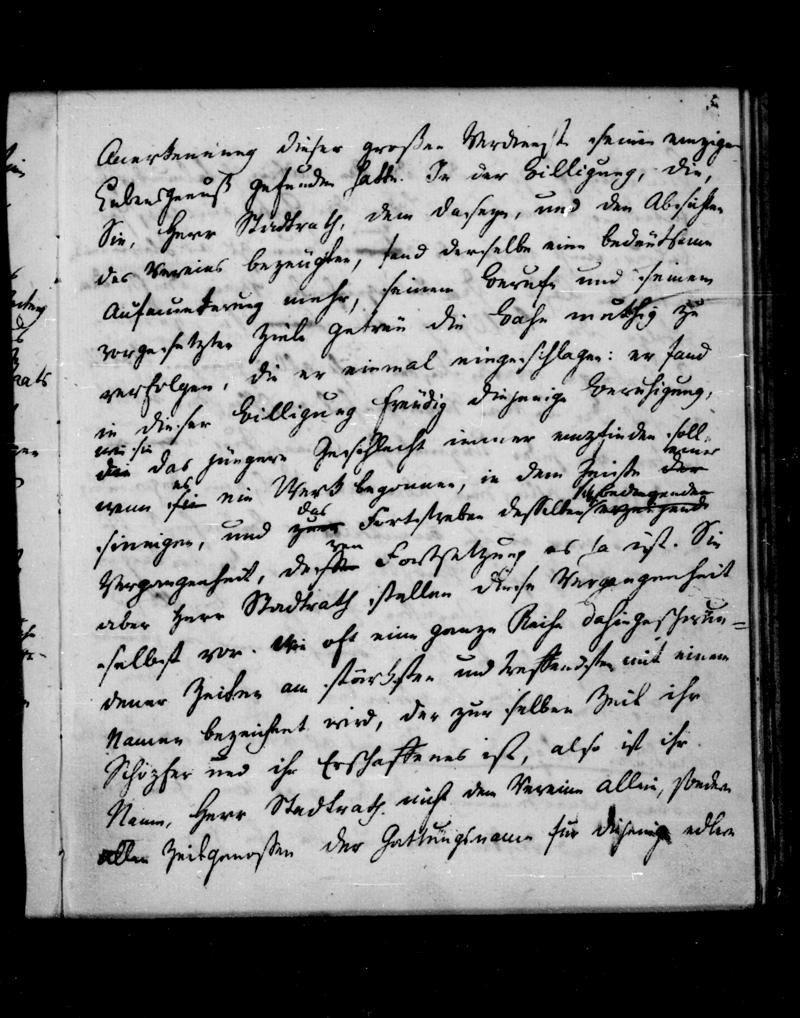 5
Anerkennung dieser großen Verdienste seinen einzigen
Lebensgenuß gefunden hatte. In der Billigung, die,
Sie, Herr Stadtrath, dem Daseyn, und den Absichten
des Vereins bezeugten, fand derselbe eine bedeutsame
Aufmunterung mehr, seinem Berufe und seinem
vorgesetzten Ziele getreu die Bahn muthig zu
verfolgen, die er einmal eingeschlagen: er fand
in dieser Billigung freudig diejenige Beruhigung,
wie sie
die das jüngere Geschlecht immer empfinden soll,
wenn sie ein Werk begonnen, in dem Geiste der
es
seiner
sinnigen, und zum Fortstreben desselben erzeugende
das
bedingenden
Vergangenheit, dessen Fortsetzung es ja ist. Sie
von
aber Herr Stadtrath stellen diese Vergangenheit
selbst vor. Wie oft eine ganze Reihe dahingeschwun=
dener Zeiten am stärksten und treffendsten mit einem
Namen bezeichnet wird, der zur selben Zeit ihr
Schöpfer und ihr Erschaffenes ist, also ist ihr
Name, Herr Stadtrath nicht dem Vereine allein, sondern
allen Zeitgenossen der Gattungsname für diejenige edlere